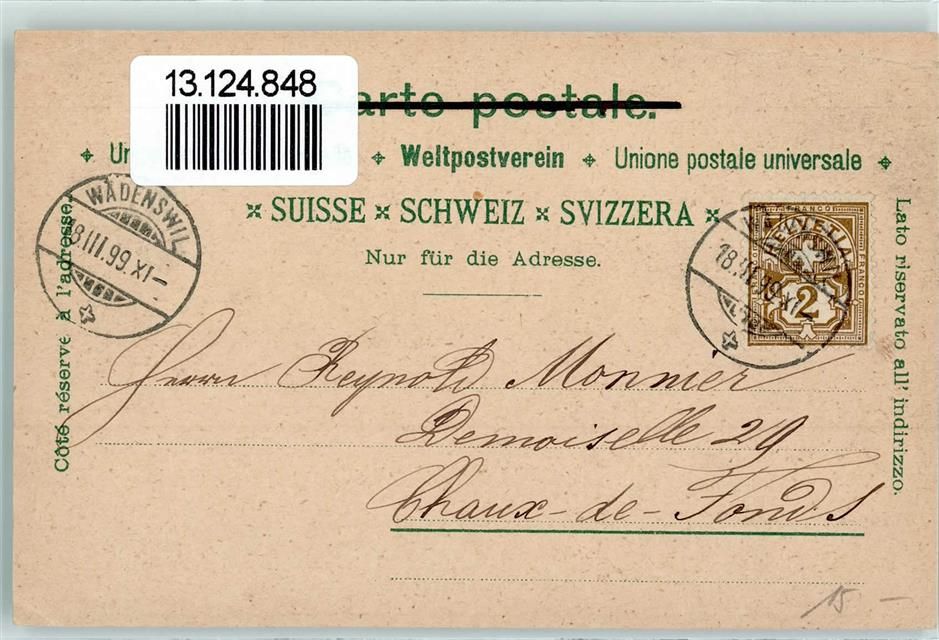 13.124.848
arte postale.
Weltpostverein Unione postale universale
SUISSE × SCHWEIZ × SVIZZERA
Nur für die Adresse.
Côté réservé à l'adresse.
Lato riservato all' indirizzo.
WÄDENSWIL
18.III.99.XI-
FRANCO
HELVETIA
2
18.III.99.XI
Herrn Reynold Monnier
Demoiselle 29
Chaux-de-Fonds
15 –